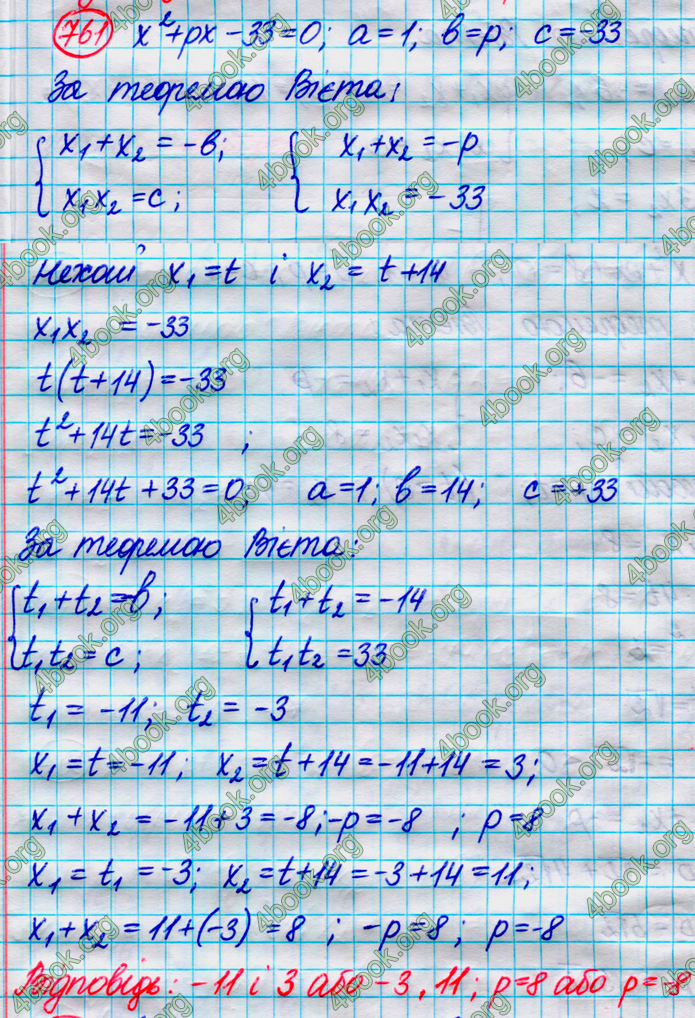 761 x²+px-33=0; a=1; в=p; c=-33
За теоремою Вієта:
{ x₁+x₂=-в; { x₁+x₂=-p
{ x₁x₂=c; { x₁x₂=-33
Нехай x₁=t і x₂=t+14
x₁x₂=-33
t(t+14)=-33
t²+14t=-33;
t²+14t+33=0; a=1; в=14; c=+33
За теремаю Вієта:
{ t₁+t₂=-в; { t₁+t₂=-14
{ t₁t₂=c; { t₁t₂=33
t₁=-11; t₂=-3
x₁=t=-11; x₂=t+14=-11+14=3;
x₁+x₂=-11+3=-8; -p=-8; p=8
x₁=t₁=-3; x₂=t+14=-3+14=11;
x₁+x₂=11+(-3)=8; -p=8; p=-8
Відповідь: -11 і 3 або -3, 11; p=8 або p=-8
4book.org